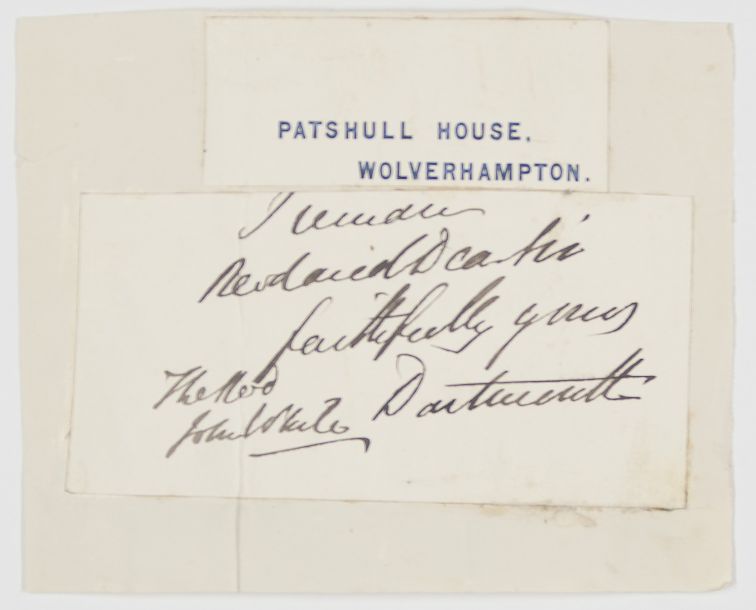 PATSHULL HOUSE.
WOLVERHAMPTON.
I remain
Revd and Dear Sir
faithfully yours
The Revd
John White
Dartmouth